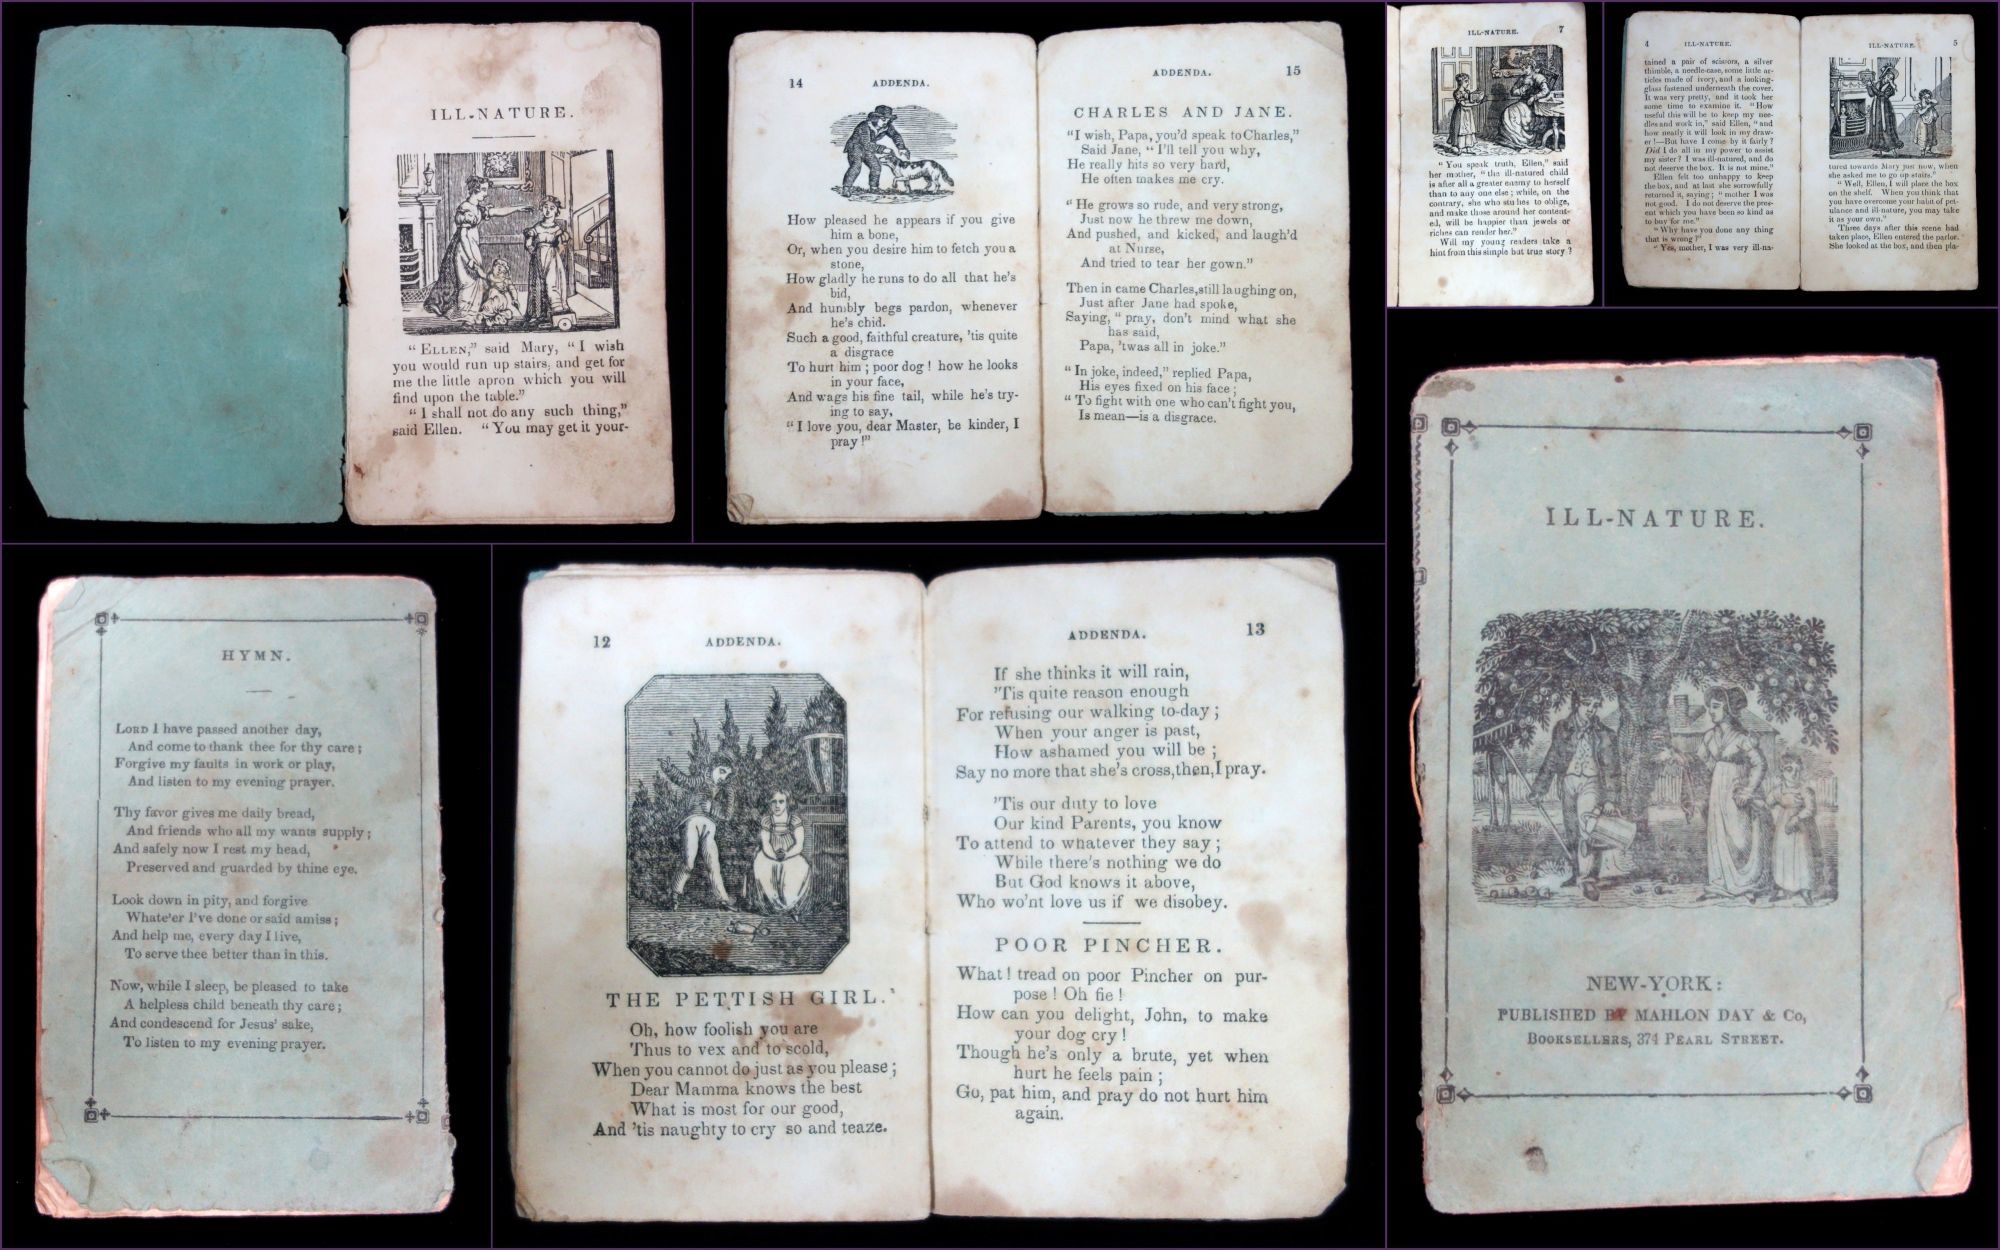 ILL-NATURE.
"ELLEN," said Mary, "I wish
you would run up stairs, and get for
me the little apron which you will
find upon the table."
"I shall not do any such thing,"
said Ellen. "You may get it your-
14 ADDENDA.
How pleased he appears if you give
him a bone,
Or, when you desire him to fetch you a
stone,
How gladly he runs to do all that he's
bid,
And humbly begs pardon, whenever
he's chid.
Such a good, faithful creature, 'tis quite
a disgrace
To hurt him; poor dog! how he looks
in your face,
And wags his fine tail, while he's try-
ing to say,
"I love you, dear Master, be kinder, I
pray!"
ADDENDA. 15
CHARLES AND JANE.
"I wish, Papa, you'd speak to Charles,"
Said Jane, "I'll tell you why,
He really hits so very hard,
He often makes me cry.
"He grows so rude, and very strong,
Just now he threw me down,
And pushed, and kicked, and laugh'd
at Nurse,
And tried to tear her gown."
Then in came Charles, still laughing on,
Just after Jane had spoke,
Saying, "pray, don't mind what she
has said,
Papa, 'twas all in joke."
"In joke, indeed," replied Papa,
His eyes fixed on his face;
"To fight with one who can't fight you,
Is mean—is a disgrace.
ILL-NATURE. 7
"You speak truth, Ellen," said
her mother, "the ill-natured child
is after all a greater enemy to herself
than to any one else; while, on the
contrary, she who studies to oblige,
and make those around her content-
ed, will be happier than jewels or
riches can render her."
Will my young readers take a
hint from this simple but true story?
4 ILL-NATURE.
tained a pair of scissors, a silver
thimble, a needle-case, some little ar-
ticles made of ivory, and a looking-
glass fastened underneath the cover.
It was very pretty, and it took her
some time to examine it. "How
useful this will be to keep my nee-
dles and work in," said Ellen, "and
how neatly it will look in my draw-
er!—But have I come by it fairly?
Did I do all in my power to assist
my sister? I was ill-natured, and do
not deserve the box. It is not mine."
Ellen felt too unhappy to keep
the box, and at last she sorrowfully
returned it, saying; "mother I was
not good. I do not deserve the pres-
ent which you have been so kind as
to buy for me."
"Why have you done any thing
that is wrong?"
"Yes, mother, I was very ill-na-
ILL-NATURE. 5
tured towards Mary just now, when
she asked me to go up stairs."
"Well, Ellen, I will place the box
on the shelf. When you think that
you have overcome your habit of pet-
ulance and ill-nature, you may take
it as your own."
Three days after this scene had
taken place, Ellen entered the parlor.
She looked at the box, and then pla-
HYMN.
LORD I have passed another day,
And come to thank thee for thy care;
Forgive my faults in work or play,
And listen to my evening prayer.
Thy favor gives me daily bread,
And friends who all my wants supply;
And safely now I rest my head,
Preserved and guarded by thine eye.
Look down in pity, and forgive
Whate'er I've done or said amiss;
And help me, every day I live,
To serve thee better than in this.
Now, while I sleep, be pleased to take
A helpless child beneath thy care;
And condescend for Jesus' sake,
To listen to my evening prayer.
12 ADDENDA.
THE PETTISH GIRL.
Oh, how foolish you are
Thus to vex and to scold,
When you cannot do just as you please;
Dear Mamma knows the best
What is most for our good,
And 'tis naughty to cry so and teaze.
ADDENDA. 13
If she thinks it will rain,
'Tis quite reason enough
For refusing our walking to-day;
When your anger is past,
How ashamed you will be;
Say no more that she's cross, then, I pray.
'Tis our duty to love
Our kind Parents, you know
To attend to whatever they say;
While there's nothing we do
But God knows it above,
Who wo'nt love us if we disobey.
POOR PINCHER.
What! tread on poor Pincher on pur-
pose! Oh fie!
How can you delight, John, to make
your dog cry!
Though he's only a brute, yet when
hurt he feels pain;
Go, pat him, and pray do not hurt him
again.
ILL-NATURE.
NEW-YORK:
PUBLISHED BY MAHLON DAY & Co,
BOOKSELLERS, 374 PEARL STREET.